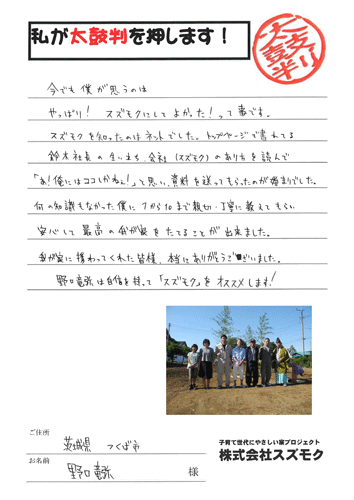 私が太鼓判を押します！
太鼓判
今でも僕が思うのは
やっぱり！ スズモクにしてよかった！って事です。
スズモクを知ったのはネットでした。トップページで書れてる
鈴木社長の生いたち、会社(スズモク)のあり方を読んで
「あ！俺にはココしかねぇ！」と思い、資料を送ってもらったのが始まりでした。
何の知識もなかった僕に1から10まで親切・丁寧に教えてもらい
安心して最高の我が家をたてることが出来ました。
我が家に携わってくれた皆様、本当にありがとうございました。
野口竜弥は自信を持って「スズモク」をオススメします！
ご住所
茨城県 つくば市
お名前
野口竜弥 様
子育て世代にやさしい家プロジェクト
株式会社スズモク